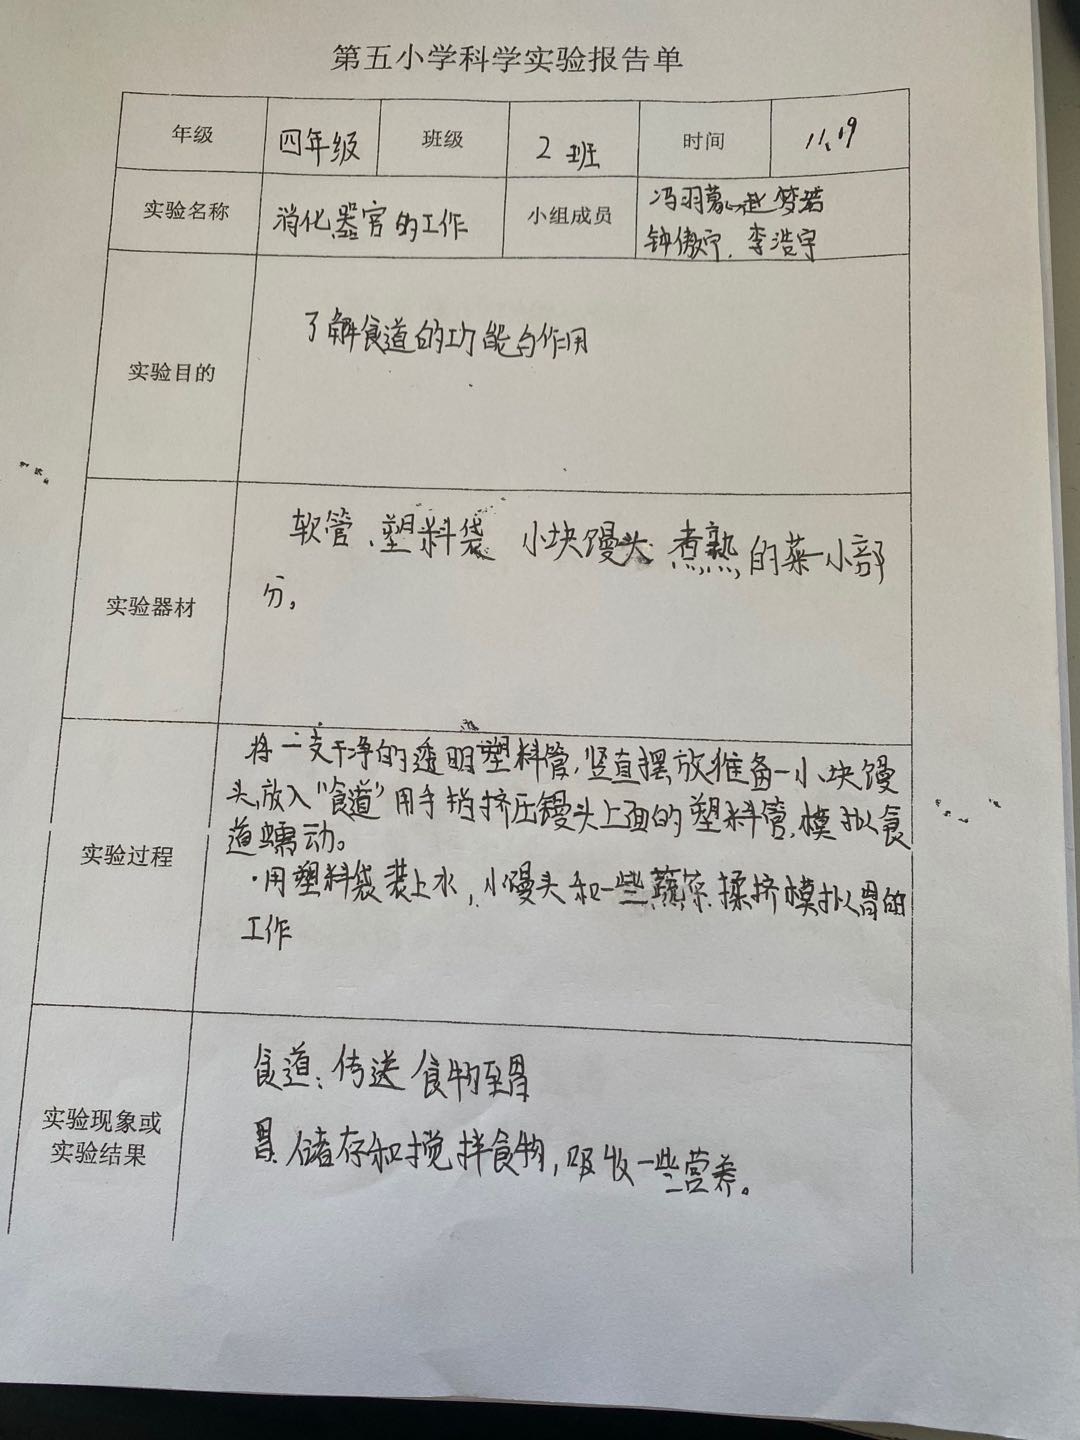 第五小学科学实验报告单
年级 四年级 班级 2班 时间 11.19
实验名称 消化器官的工作 小组成员 冯羽 赵梦若
钟傲宁.李浩宇
实验目的 了解食道的功能与作用
实验器材 软管、塑料袋 小块馒头 煮熟的菜一小部
分。
实验过程 将一支干净的透明塑料管,竖直摆放准备一小块馒
头,放入“食道”用手指挤压馒头上面的塑料管,模拟食
道蠕动。
·用塑料袋装上水,小馒头和一些蔬菜.揉挤模拟胃的
工作
实验现象或
实验结果
食道:传送食物至胃
胃:储存和搅拌食物,吸收一些营养。